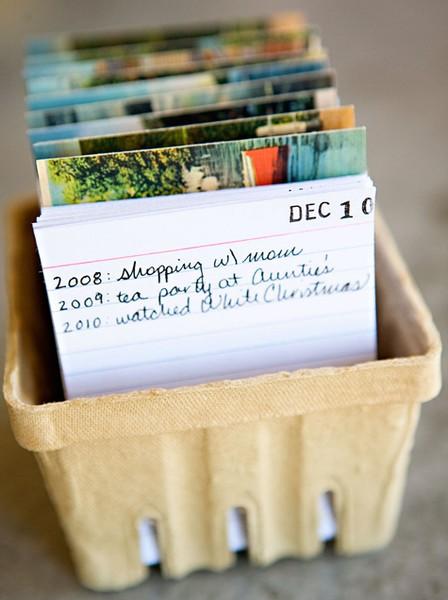 DEC 10
2008: shopping w\ mom
2009: tea party at Auntie's
2010: watched White Christmas